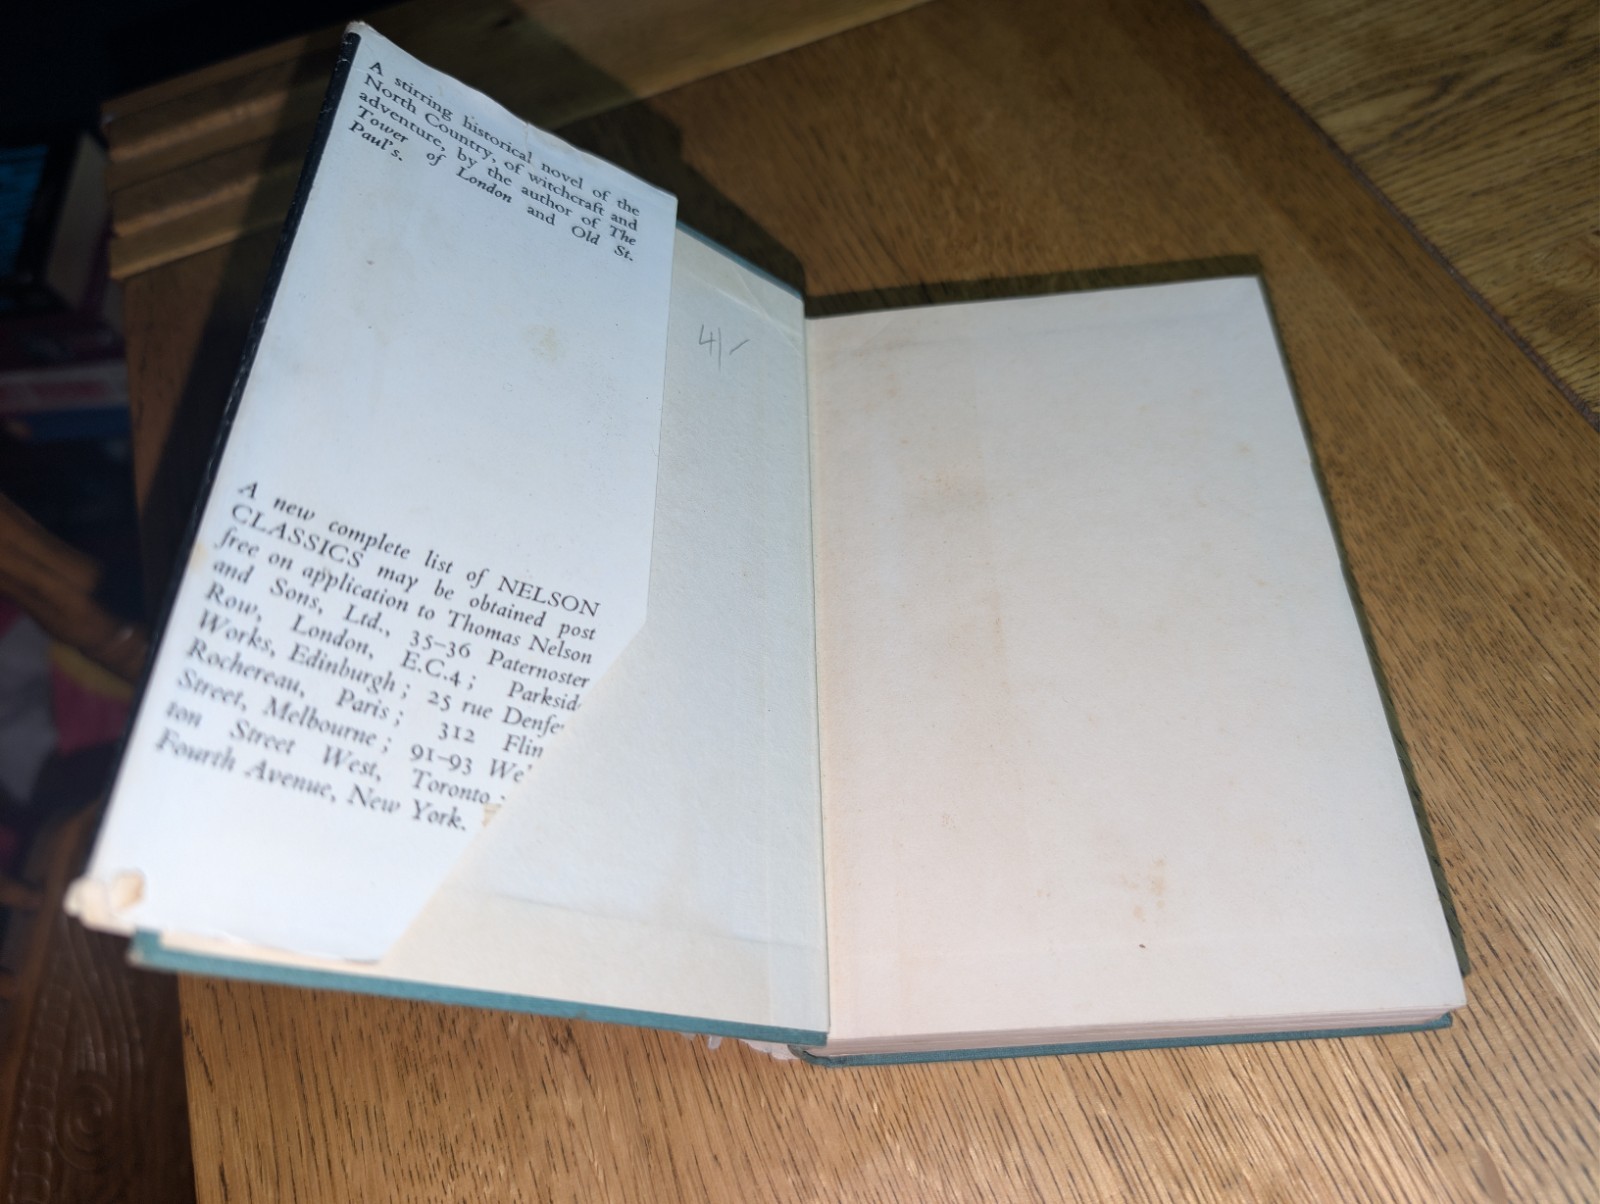 A stirring historical novel of the
North Country, of witchcraft and
adventure, by the author of The
Tower of London and Old St.
Paul's.
A new complete list of NELSON
CLASSICS may be obtained post
free on application to Thomas Nelson
and Sons, Ltd., 35–36 Paternoster
Row, London, E.C.4; Parksid
Works, Edinburgh; 25 rue Denfe
Rochereau, Paris; 312 Flin
Street, Melbourne; 91–93 We
ton Street West, Toronto;
Fourth Avenue, New York.
4/-